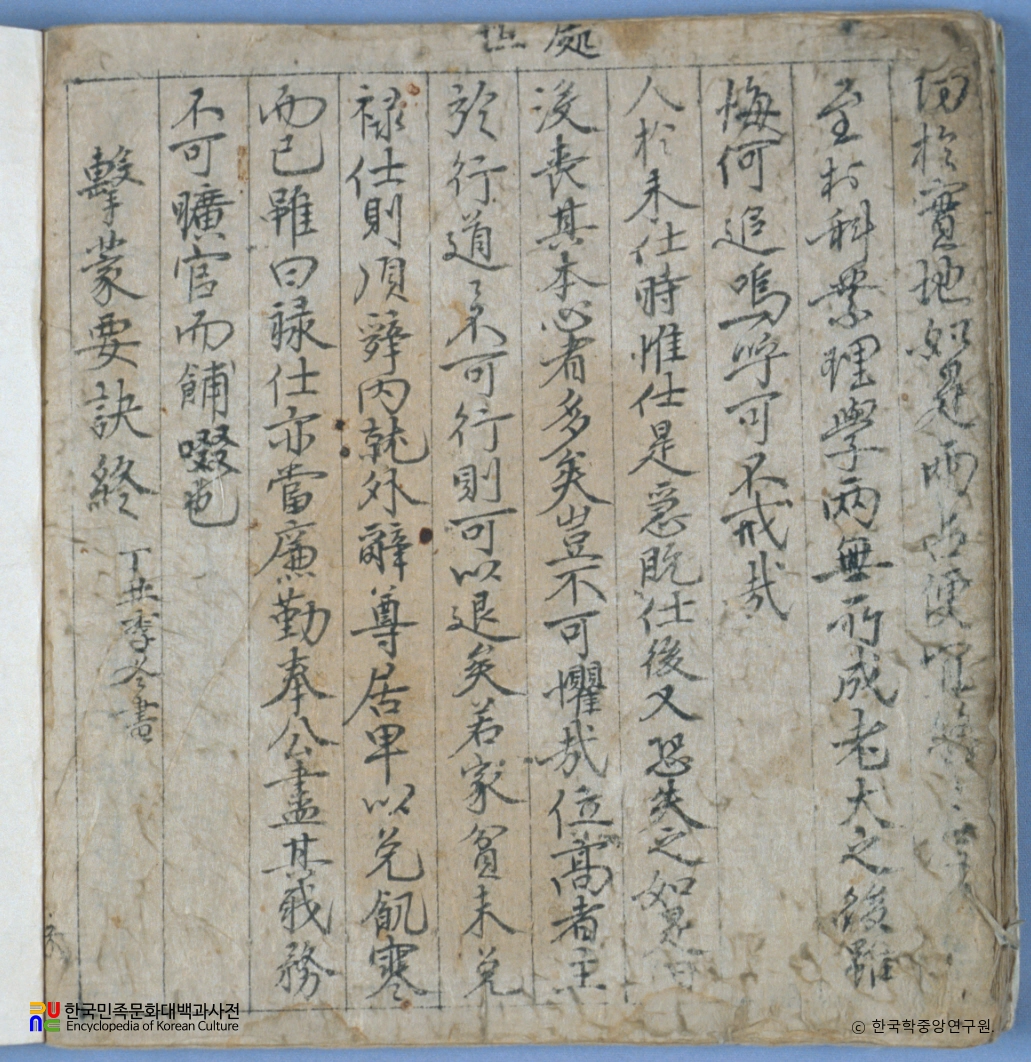 世 處
於實地如是而
至於科業理學兩無所成老大之後雖
悔何追嗚呼可不戒哉
人於未仕時惟仕是急旣仕後又恐失之如是
沒喪其本心者多矣豈不可懼哉位高者主
於行道〻不可行則可以退矣若家貧未免
祿仕則須辭內就外辭尊居卑以免飢寒
而已雖曰祿仕亦當廉勤奉公盡其職務
不可曠官而餔啜也
擊蒙要訣終 丁丑季冬書
한국민족문화대백과사전
Encyclopedia of Korean Culture
© 한국학중앙연구원